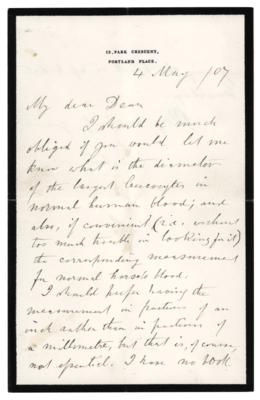 12, PARK CRESCENT,
PORTLAND PLACE.
4 May /07
My dear Dean
I should be much
obliged if you would let me
know what is the diameter
of the largest leucocytes in
normal human blood; and
also, if convenient (i.e. without
too much trouble in looking for it)
the corresponding measurement
for normal horse's blood.
I should prefer having the
measurement in fractions of an
inch rather than in fractions of
a millimetre, but that is, of course,
not essential. I have no book